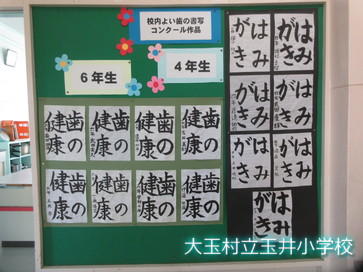 校内よい歯の書写
コンクール作品
6年生
4年生
歯の
健康
歯の
健康
歯の
健康
歯の
健康
歯の
健康
歯の
健康
歯の
健康
歯の
健康
はみ
がき
はみ
がき
はみ
がき
はみ
がき
はみ
がき
はみ
がき
はみ
がき
大玉村立玉井小学校